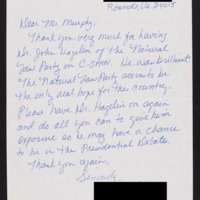 Roanoke, Va 24015
Dear Mr. Murphy,
Thank you very much for having
Dr. John Hagelin of the Natural
Law Party on C-SPAN. He was brilliant!
The Natural Law Party seems to be
the only real hope for this country.
Please have Dr. Hagelin on again
and do all you can to give him
exposure so he may have a chance
to be in the Presidential Debate.
Thank you again,
Sincerely,